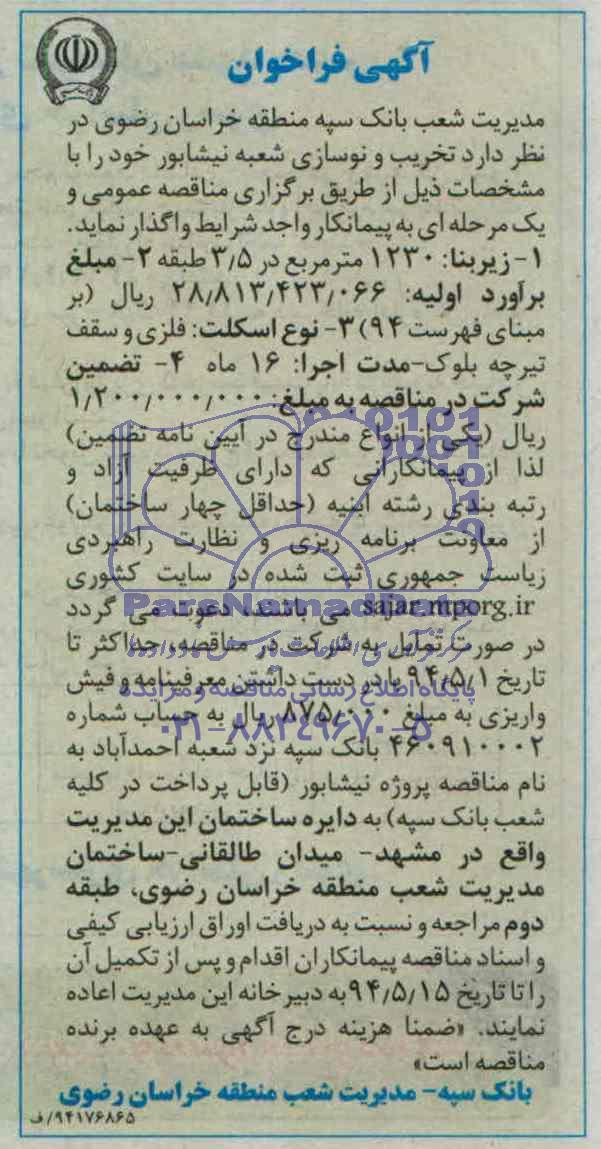 آگهی فراخوان
مدیریت شعب بانک سپه منطقه خراسان رضوی در
نظر دارد تخریب و نوسازی شعبه نیشابور خود را با
مشخصات ذیل از طریق برگزاری مناقصه عمومی و
یک مرحله ای به پیمانکار واجد شرایط واگذار نماید.
۱- زیربنا: ۱۲۳۰ مترمربع در ۳/۵ طبقه ۲- مبلغ
برآورد اولیه: ۲۸/۸۱۳/۴۲۳/۰۶۶ ریال (بر
مبنای فهرست ۹۴) ۳- نوع اسکلت: فلزی و سقف
تیرچه بلوک-مدت اجرا: ۱۶ ماه ۴- تضمین
شرکت در مناقصه به مبلغ: ۱/۲۰۰/۰۰۰/۰۰۰
ریال (یکی از انواع مندرج در آیین نامه تضمین)
لذا از پیمانکارانی که دارای ظرفیت آزاد و
رتبه بندی رشته ابنیه (حداقل چهار ساختمان)
از معاونت برنامه ریزی و نظارت راهبردی
زیاست جمهوری ثبت شده در سایت کشوری
ParsNamadData
sajar.mporg.ir می باشند، دعوت می گردد
در صورت تمایل به شرکت در مناقصه، حداکثر تا
تاریخ ۹۴/۵/۱ با در دست داشتن معرفینامه و فیش
پایگاه اطلاع رسانی مناقصه و مزایده
واریزی به مبلغ ۸۷۵/۰۰۰ ریال به حساب شماره
۰۲۱-۸۸۳۴۹۶۷۰-۵
۴۶۰۹۱۰۰۰۲ بانک سپه نزد شعبه احمدآباد به
نام مناقصه پروژه نیشابور (قابل پرداخت در کلیه
شعب بانک سپه) به دایره ساختمان این مدیریت
واقع در مشهد- میدان طالقانی-ساختمان
مدیریت شعب منطقه خراسان رضوی، طبقه
دوم مراجعه و نسبت به دریافت اوراق ارزیابی کیفی
و اسناد مناقصه پیمانکاران اقدام و پس از تکمیل آن
را تا تاریخ ۹۴/۵/۱۵ به دبیرخانه این مدیریت اعاده
نمایند. «ضمنا هزینه درج آگهی به عهده برنده
مناقصه است»
بانک سپه- مدیریت شعب منطقه خراسان رضوی
۹۴۱۷۶۸۶۵/ف